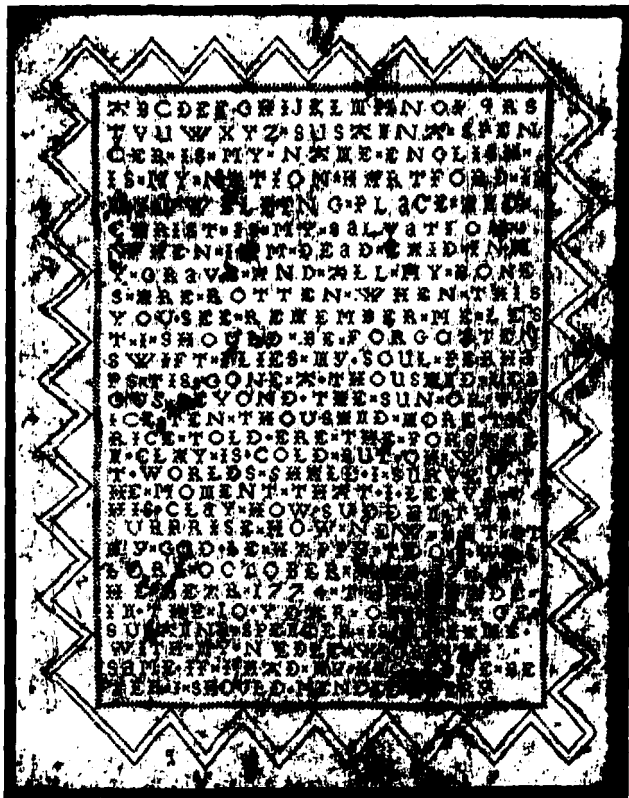 ABCDEFGHIJKLMNOPQRS
TVUWXYZ×SUSANNA×SPEN
CER×IS×MY×NAME×ENGLISH×
IS×MY×NATION×HARTFORD×IS
PLaCE
CHRIST×IS×MY×SaLVaTION×
WHEN×I×AM×DEaD×AND×IN×M
Y×GRaVE×AND×ALL×MY×BONE
S×ARE×ROTTEN×WHEN×THIS
YOU×SEE×REMEMBER×ME×LES
T×I×SHOULD×BE×FORGOTTEN
SWIFT×FLIES×MY×SOUL×PERHa
PS×TIS×GONE×A×THOUSAND×LEA
GUS×BEYOND×THE×SUN×OR×TW
ICE×TEN×THOUSAND×MORE×TH
RICE×TOLD×ERE×THE×FORSAKE
N×CLAY×IS×COLD×BUT×OH×
T×WORLDS×SHALL×I×SURVEY×T
HE×MOMENT×THAT×I×LEAVE×T
HIS×CLaY×HOW×SUDDEN×THE×
SURPRISE×HOW×NEW×
MY×GOD×BE×HAPPY×TOO×
OCTOBER×
1774×
THE×10×YEAR×OF×
SUSANNA×SPENCER×IS×MY×NAME×
WITH×MY×NEDLE×
SAME×IF×I×HAD×
TER×I×SHOULD×MENDED×